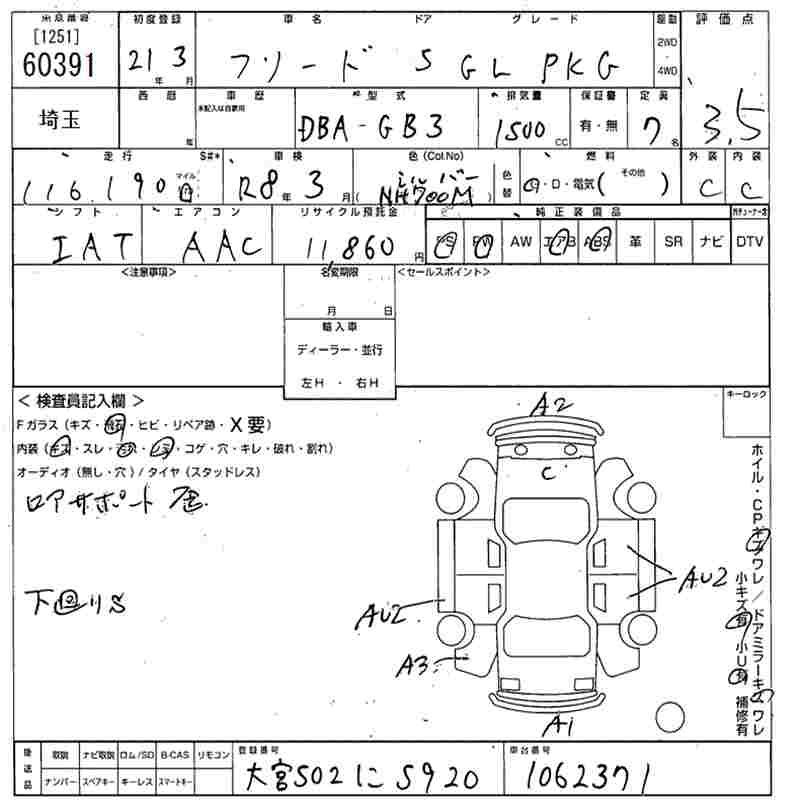 来意番号 初度登録 車名 ドア グレード 駆動 評価点
[1251]
60391 21年 3月 フリード 5 G L PKG 2WD 4WD 3.5
埼玉 西暦 年 車歴 未記入は自家用 型式 DBA-GB3 排気量 1500 CC 保証書 有・無 定員 7名
走行 S#* 車検 色(Col.No) 燃料 外装 内装
116,190 マイル R8年 3月 (シルバー NH700M) 色替 ・ロ・電気(その他 ) C C
シフト エアコン リサイクル預託金 純正装備品
IAT AAC 11,860円 PS PW AW エアB ABS 革 SR ナビ DTV
<注意事項> 名変期限 <セールスポイント>
月 日
輸入車
ディーラー・並行
左H ・ 右H
< 検査員記入欄 > キーロック
Fガラス(キズ・飛石・ヒビ・リペア跡・X要)
内装(キズ・スレ・汚れ・シミ・コゲ・穴・キレ・破れ・割れ)
オーディオ(無し・穴)/タイヤ(スタッドレス)
ロアサポート
下回りS
A2
C
AU2
AU2
A3
A1
ホイル・CPキズワレ/ドアミラーキズワレ
小キズ有 小U有 補修有
後送品 取説 ナビ取説 ロム/SD B-CAS リモコン 登録番号 車台番号
ナンバー スペアキー キーレス スマートキー 大宮502に5920 1062371